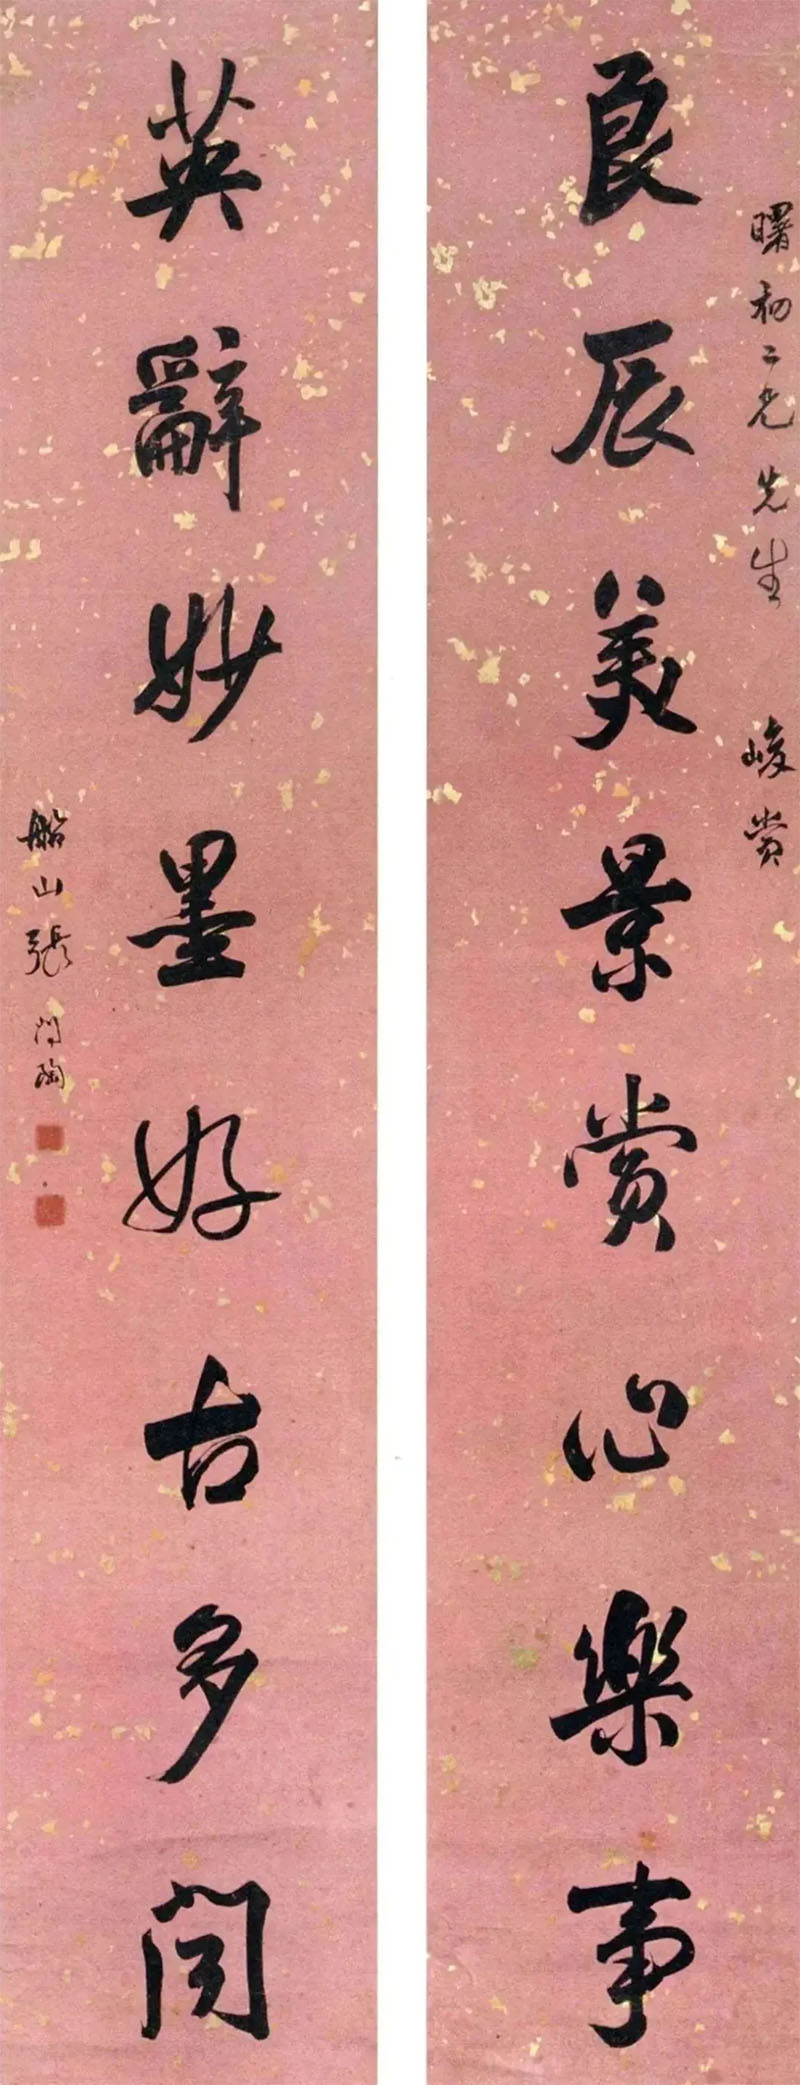 曙初二兄先生 峻賞
良辰美景賞心樂事
英辭妙墨好古多聞
船山張問陶